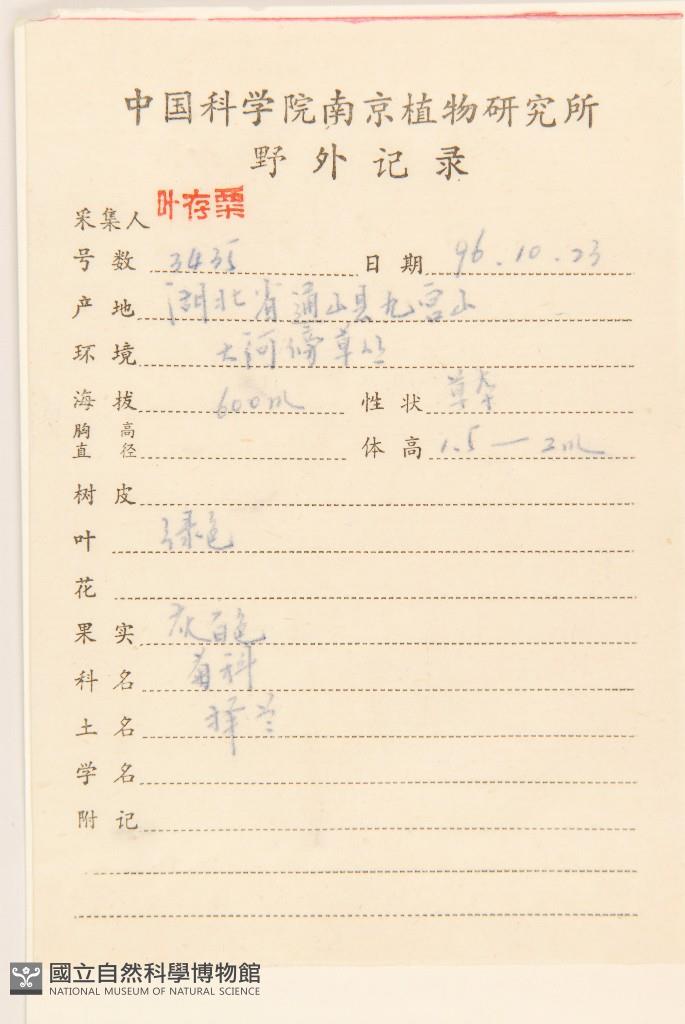 中国科学院南京植物研究所
野外记录
采集人 叶存粟
号数 3435 日期 96.10.23
产地 湖北省通山县九宫山
环境 大河傍草丛
海拔 600m 性状 草本
胸高直径 体高 1.5—2m
树皮
叶 绿色
花
果实 灰白色
科名 菊科
土名 择兰
学名
附记
國立自然科學博物館
NATIONAL MUSEUM OF NATURAL SCIENCE